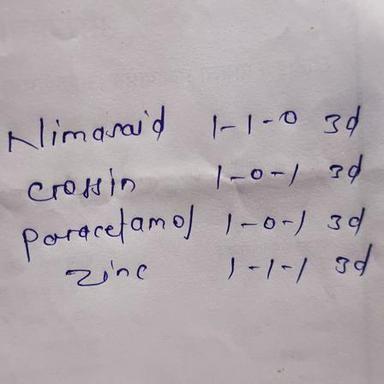 Nimasaid 1-1-0 3d
Crossin 1-0-1 3d
Paracetamol 1-0-1 3d
Zinc 1-1-1 3d